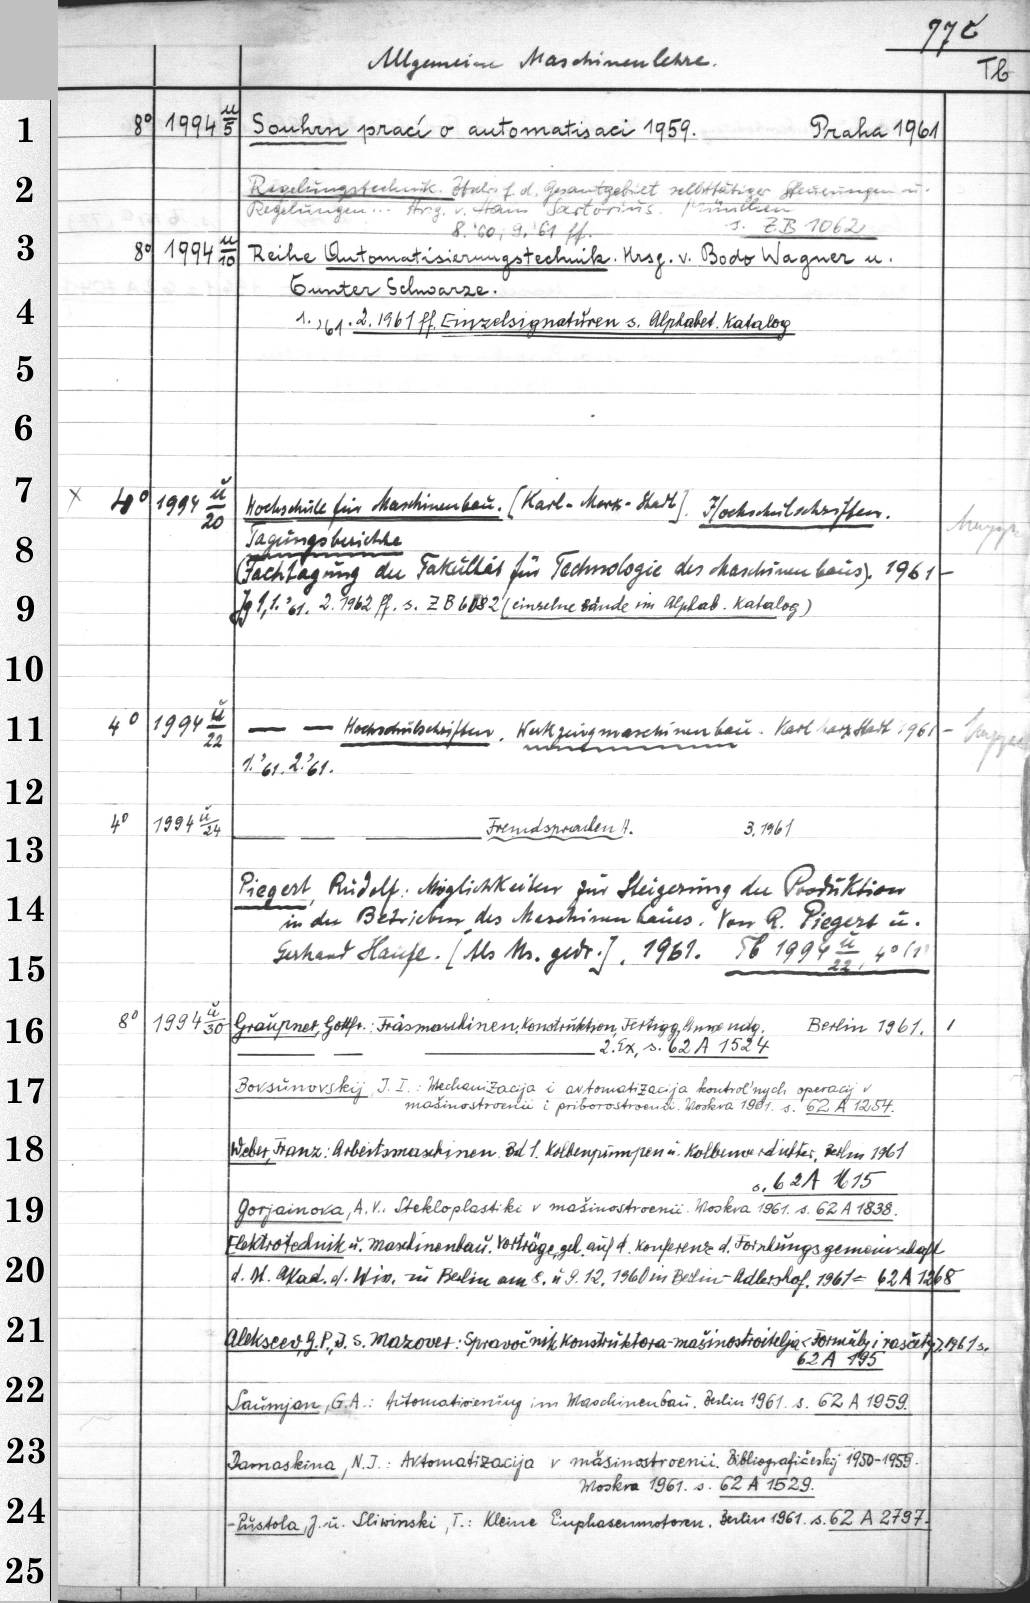 77c
Allgemeine Maschinenlehre.
Tb
1 8° 1994 u/5 Souhrn prací o automatisaci 1959. Praha 1961
2 Regelungstechnik. f. d. Gesamtgebiet selbsttätiger Steuerungen u.
Regelungen... Hrsg. v. Hans Sartorius. München
8.'60, 9.'61 ff. s. ZB 1062
3 8° 1994 u/10 Reihe Automatisierungstechnik. Hrsg. v. Bodo Wagner u.
Gunter Schwarze.
4 1.'61. 2.1961 ff. Einzelsignaturen s. Alphabet. Katalog
5
6
7 x 4° 1994 ü/20 Hochschule für Maschinenbau. [Karl-Marx-Stadt]. Hochschulschriften.
8 Tagungsberichte
(Fachtagung der Fakultät für Technologie des Maschinenbaus). 1961–
9 Jg 1,1.'61. 2.1962 ff. s. ZB 6082 (einzelne Bände im Alphab. Katalog)
10
11 4° 1994 ü/22 — — Hochschulschriften. Werkzeugmaschinenbau. Karl Marx Stadt 1961–
1.'61. 2.'61.
12
4° 1994 ü/24 Fremdsprachen A. 3.1961
13
14 Piegert, Rudolf: Möglichkeiten zur Steigerung der Produktion
in den Betrieben des Maschinenbaues. Von R. Piegert u.
15 Gerhard Haufe. [Als Ms. gedr.]. 1961. Tb 1994 ü/22, 4° (1
16 8° 1994 ü/30 Graupner, Gottfr.: Fräsmaschinen, Konstruktion, Fertigg, Anwendg. Berlin 1961. 1
2. Ex, s. 62 A 1524
17 Borsunovskij, J. I.: Mechanizacija i avtomatizacija kontrol'nych operacij v
mašinostroenii i priborostroenii. Moskva 1961. s. 62 A 1254.
18 Weber, Franz: Arbeitsmaschinen. Bd 1. Kolbenpumpen u. Kolbenverdichter, Berlin 1961
s. 62 A 1615
19 Gorjainova, A. V.: Stekloplastiki v mašinostroenii. Moskva 1961. s. 62 A 1838.
Elektrotechnik u. Maschinenbau. Vorträge, geh. auf d. Konferenz d. Forschungsgemeinschaft
20 d. Dt. Akad. d. Wiss. zu Berlin am 8. u. 9. 12. 1960 in Berlin-Adlershof. 1961 = 62 A 1268
21 Alekseev, G. P., I. S. Mazover: Spravočnik konstruktora-mašinostroitelja <Formuly i rasčety>. 1961 s.
62 A 195
22 Šaumjan, G.A.: Automatisierung im Maschinenbau. Berlin 1961. s. 62 A 1959.
23 Damaskina, N.I.: Avtomatizacija v mašinostroenii. Bibliografičeskij 1950–1959.
Moskva 1961. s. 62 A 1529.
24 –Pustola, J. u. Sliwinski, T.: Kleine Einphasenmotoren. Berlin 1961. s. 62 A 2797.
25